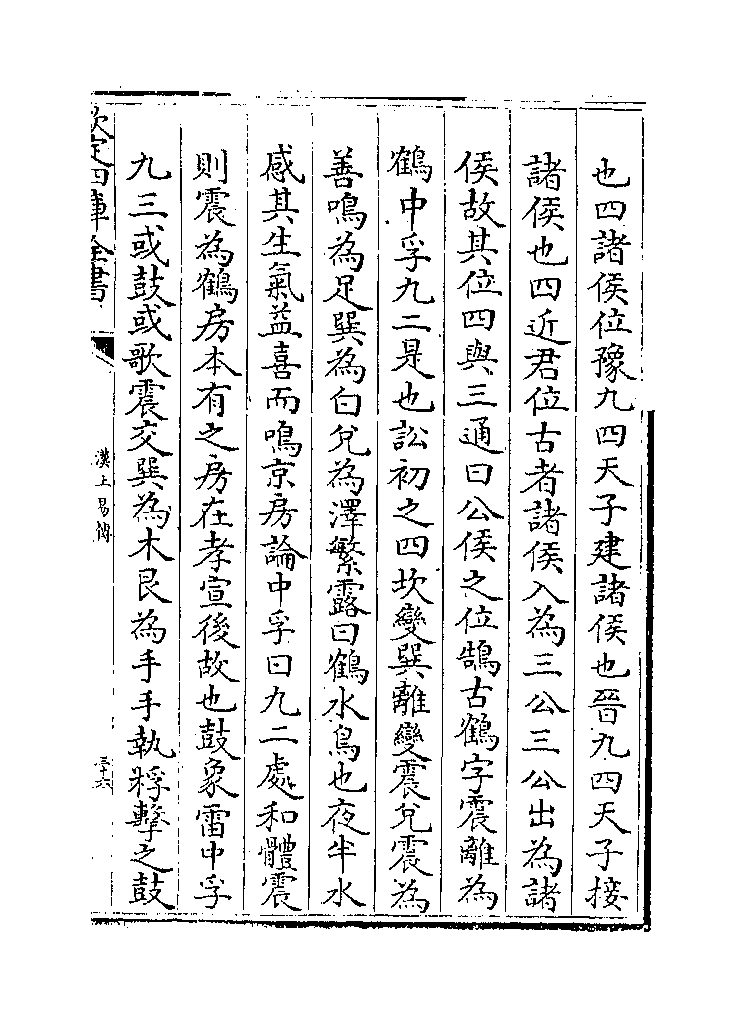 也四諸侯位豫九四天子建諸侯也晉九四天子接
諸侯也四近君位古者諸侯入為三公三公出為諸
侯故其位四與三通曰公侯之位鵠古鶴字震離為
鶴中孚九二是也訟初之四坎變巽離變震兌震為
善鳴為足巽為白兌為澤繁露曰鶴水鳥也夜半水
感其生氣益喜而鳴京房論中孚曰九二處和體震
則震為鶴房本有之房在孝宣後故也鼓象雷中孚
九三或鼓或歌震交巽為木艮為手手執桴擊之鼓
欽定四庫全書
漢上易傳
三十六